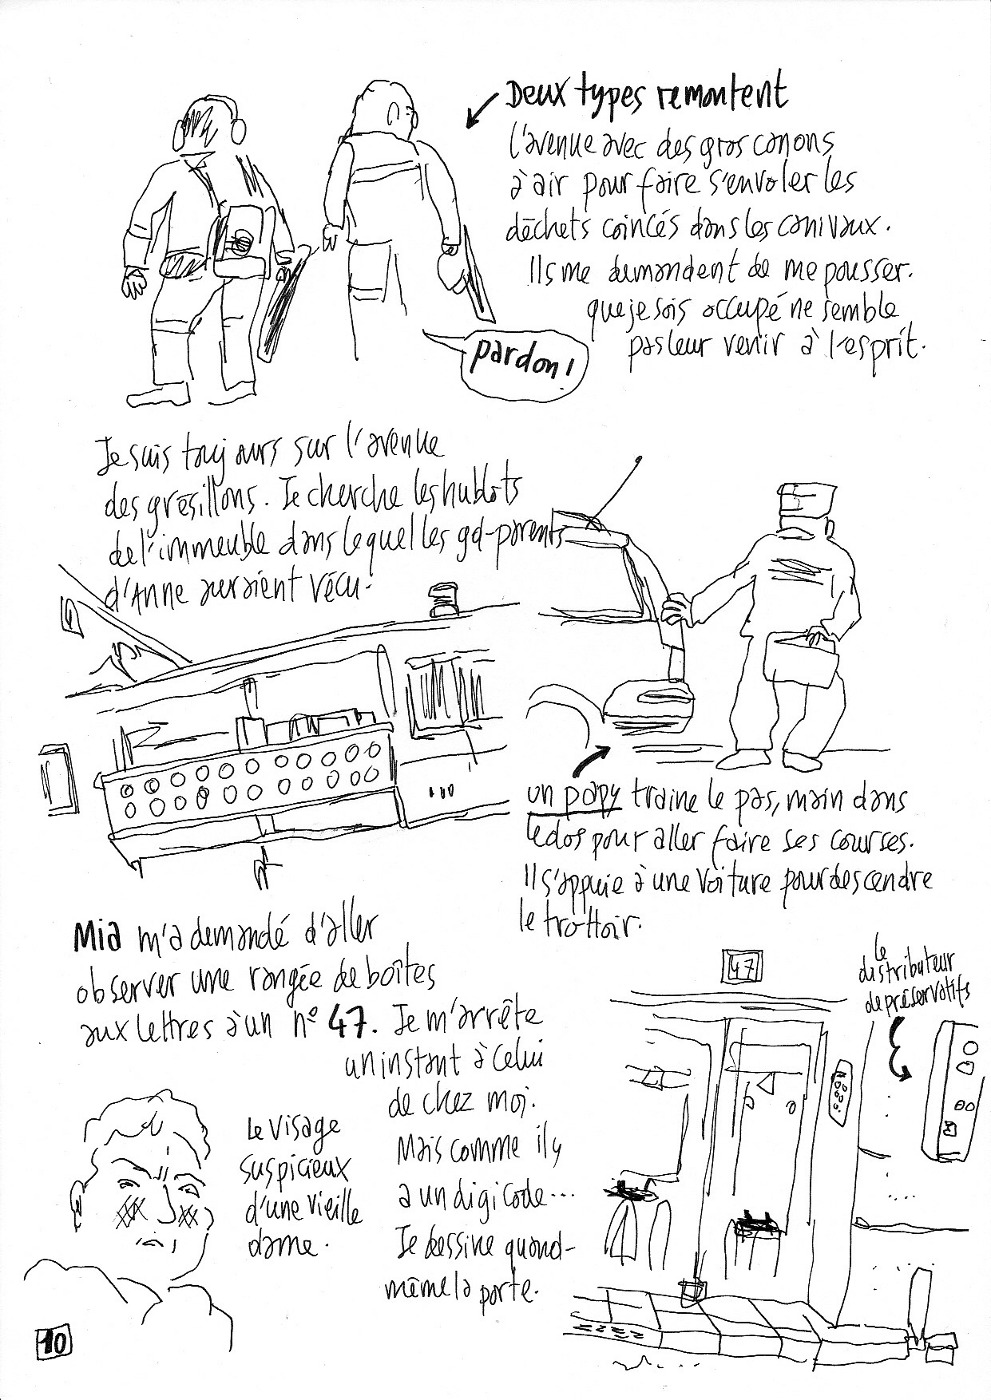 Deux types remontent
l'avenue avec des gros canons
à air pour faire s'envoler les
déchets coincés dans les canivaux.
Ils me demandent de me pousser.
que je sois occupé ne semble
pas leur venir à l'esprit.
pardon!
Je suis toujours sur l'avenue
des grésillons. Je cherche les hublots
de l'immeuble dans lequel les gd-parents
d'Anne auraient vécu.
un papy traine le pas, main dans
le dos pour aller faire ses courses.
Il s'appuie à une voiture pour descendre
le trottoir.
Mia m'a demandé d'aller
observer une rangée de boîtes
aux lettres à un n° 47. Je m'arrête
un instant à celui
de chez moi.
Mais comme il y
a un digicode...
Je dessine quand-
même la porte.
Le visage
suspicieux
d'une vieille
dame.
47
le
distributeur
de préservatifs
10